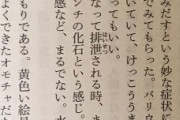 みだすという妙な症状に
でみてもらった。バリウ
いていて、けっこううま
ってもいい。
なって排泄される時、ま
ンチの化石という感じ。
感など、まるでない。水
もりである。黄色い絵
よくできたオモチャだ